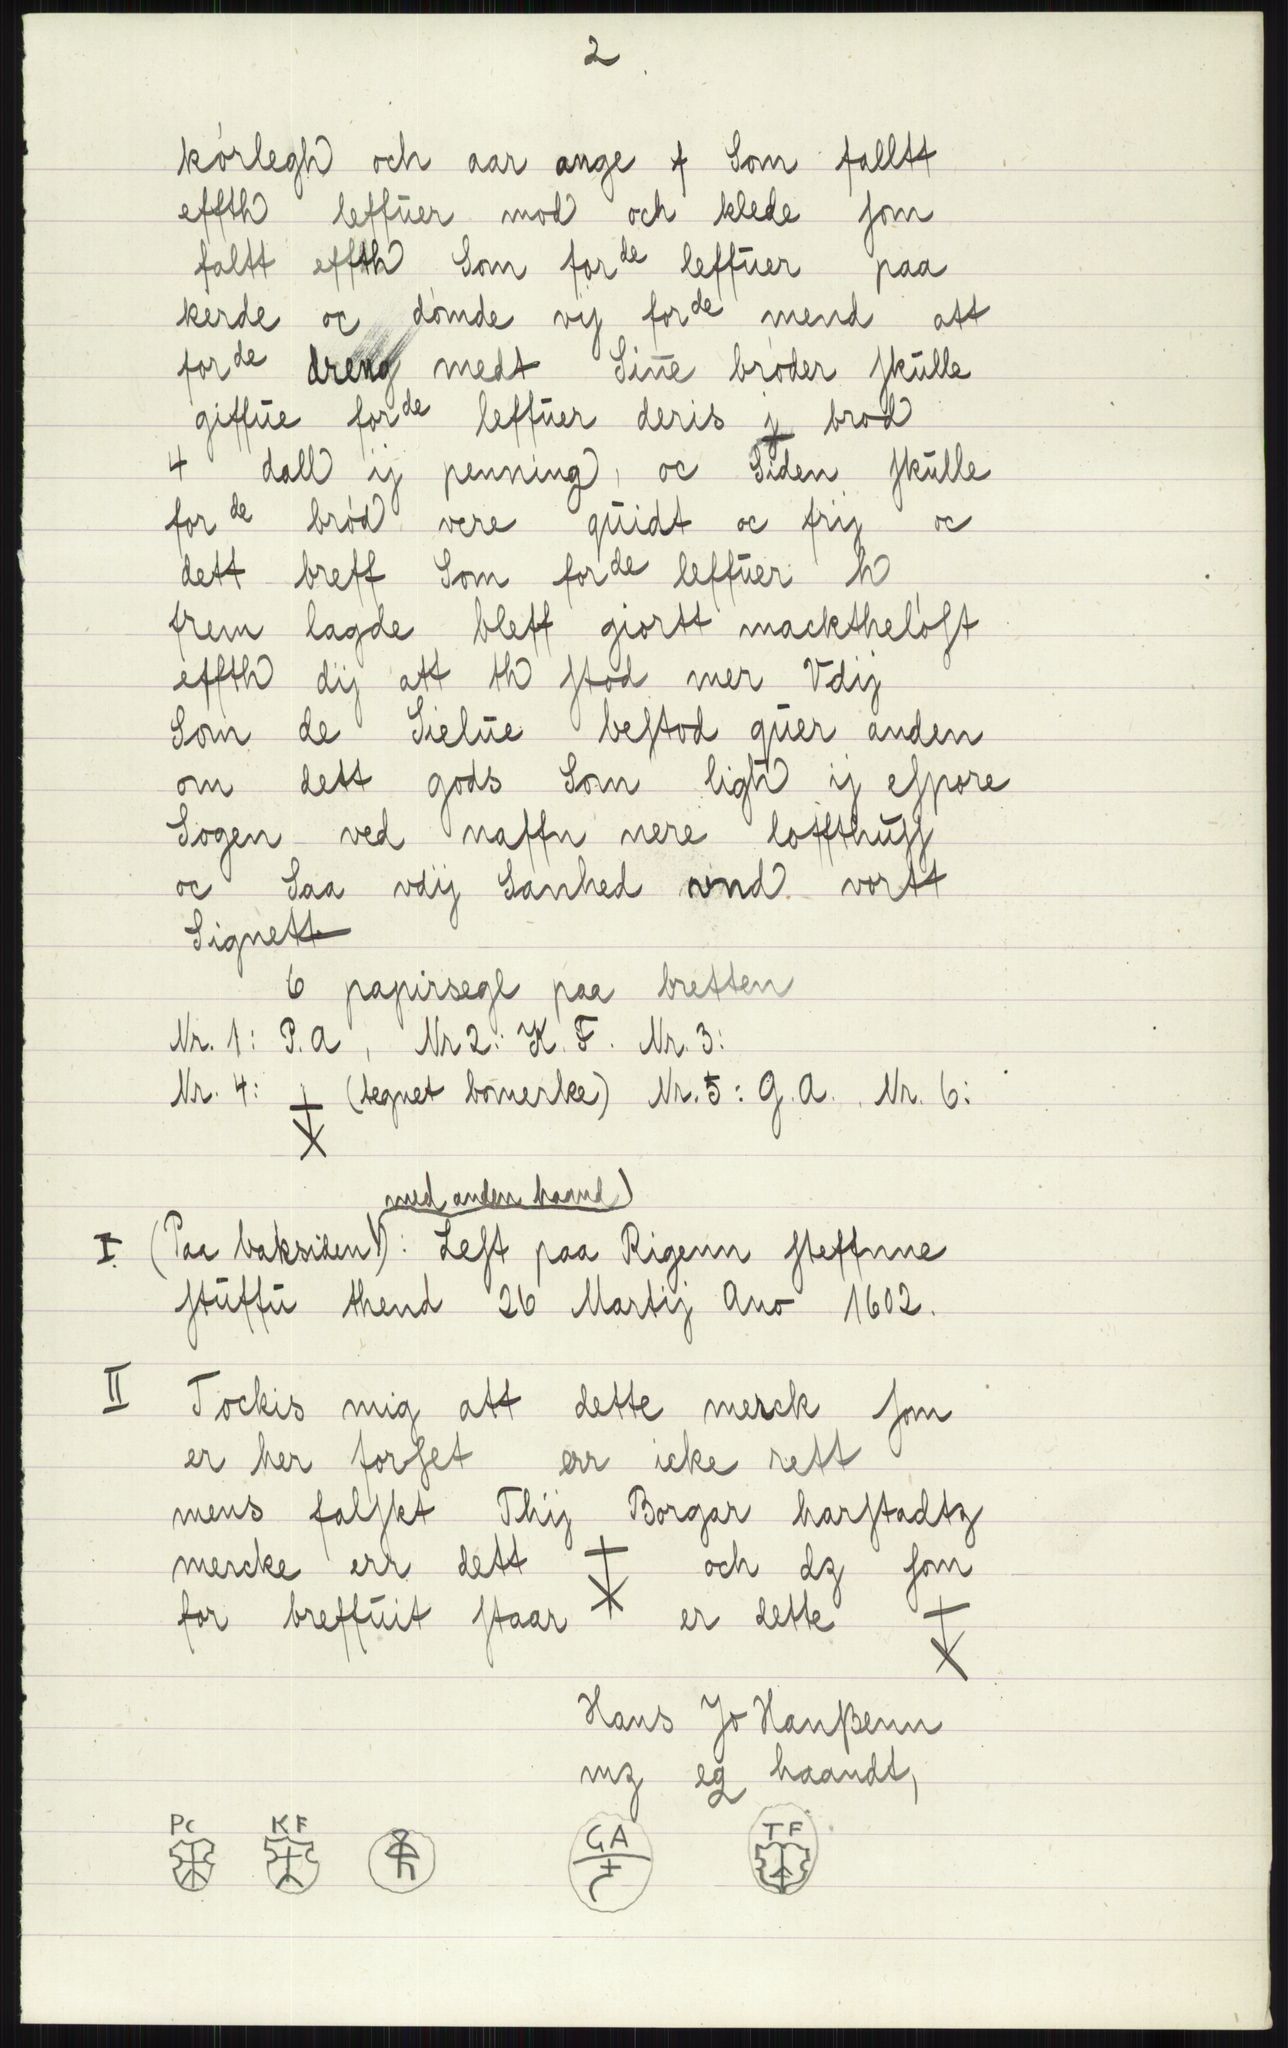 2
kórlegh och aar ange f Som falltt
effth leffūer mod och klede som
faltt effth Som for de leffūer paa
kerde oc dómde vij for de mend att
for de dreng medt Siñe bróder skūlle
giffūe for de leffūer deris j brod
4 dall ij penning, oc Siden skūlle
for de bród vere qūidt oc frij oc
dett breff Som for de leffūer h
frem lagde bleff giortt macktheлóst
effth dij att th stod mer Vdij
Som de Sielūe bestod qūer anden
om dett gods Som ligh ij espore
Sogen ved naffn nere loffthūss
oc Saa vdij Sanhed vnd vortt
Signett
6 papirsegl paa bretten
Nr. 1: P.A, Nr 2: K.F. Nr. 3:
Nr. 4: (tegnet bomerke) Nr. 5: G.A. Nr. 6:
med anden haand)
I (Paa baksiden): Lest paa Rigenn steffnne
stūffū thend 26 Martij Ano 1602.
II Tockis mig att dette merck som
er her forset err icke rett
mens falskt Thij Borgar harstadtz
mercke err dett och dz som
for breffūit staar er dette
Hans Jo Hanßenn
mz eg haandt,
PC KF GA TF